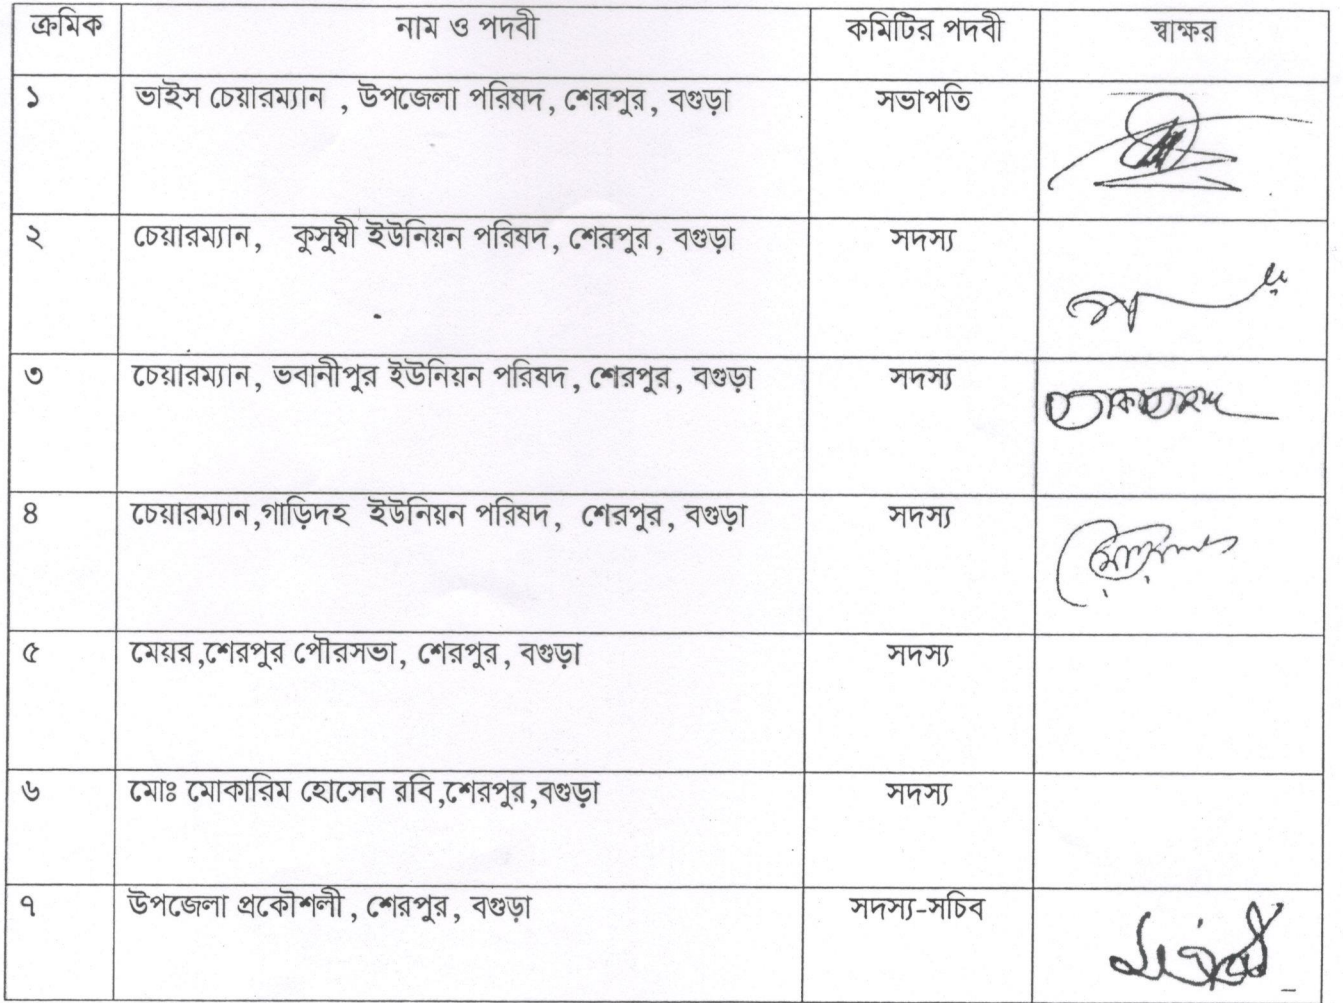 ক্রমিক নাম ও পদবী কমিটির পদবী স্বাক্ষর
১ ভাইস চেয়ারম্যান , উপজেলা পরিষদ, শেরপুর, বগুড়া সভাপতি
২ চেয়ারম্যান, কুসুম্বী ইউনিয়ন পরিষদ, শেরপুর, বগুড়া সদস্য
৩ চেয়ারম্যান, ভবানীপুর ইউনিয়ন পরিষদ, শেরপুর, বগুড়া সদস্য
৪ চেয়ারম্যান,গাড়িদহ ইউনিয়ন পরিষদ, শেরপুর, বগুড়া সদস্য
৫ মেয়র,শেরপুর পৌরসভা, শেরপুর, বগুড়া সদস্য
৬ মোঃ মোকারিম হোসেন রবি,শেরপুর,বগুড়া সদস্য
৭ উপজেলা প্রকৌশলী, শেরপুর, বগুড়া সদস্য-সচিব